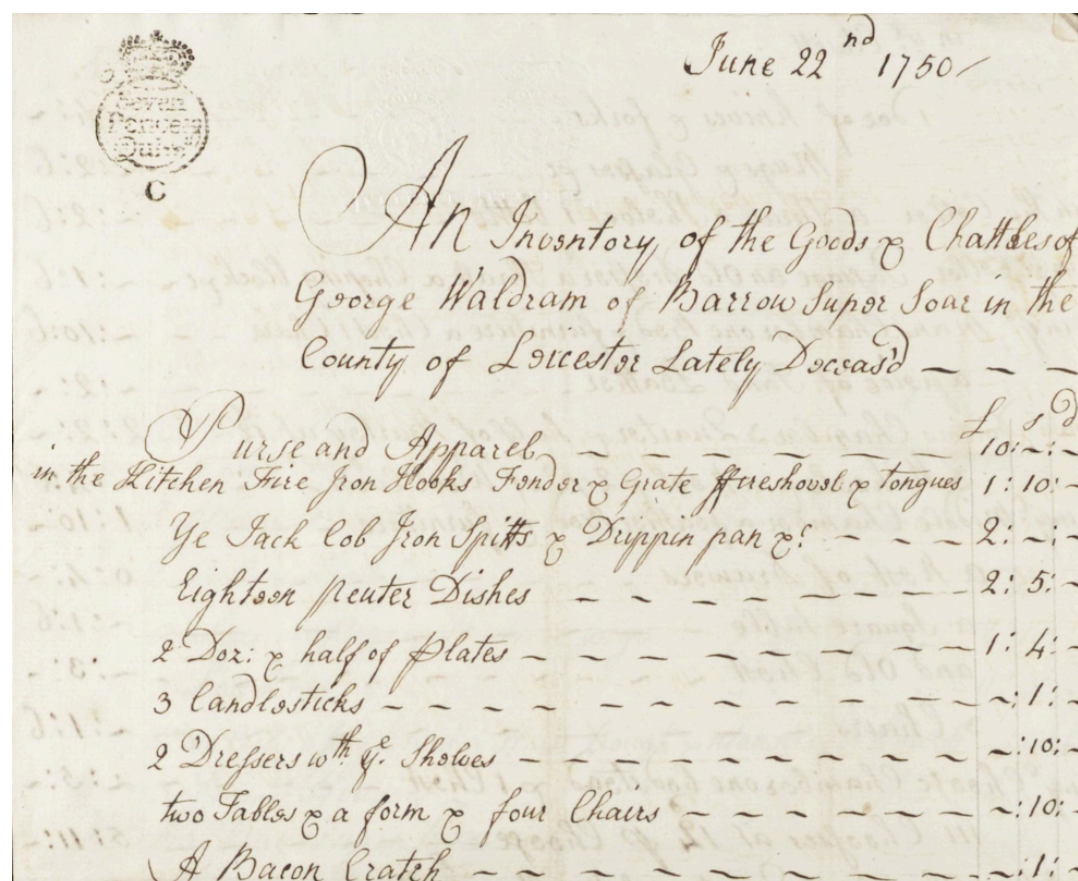 Seven
Pence p
Quire
C
June 22nd 1750
An Inventory of the Goods & Chattles of
George Waldram of Barrow Super Soar in the
County of Leicester Lately Deceas'd
£ s d
Purse and Apparel 10:~:~
in the Kitchen Fire Iron Hooks Fender & Grate ffireshovel & tongues 1:10:~
Ye Jack Cob Iron Spitts & Drippin pan &c 2:~:~
Eighteen Peuter Dishes 2:5:~
2 Doz: & half of Plates 1:4:~
3 Candlesticks ~:1:~
2 Dressers wth ye Shelves ~:10:~
two Tables & a form & four Chairs ~:10:~
A Bacon Cratch ~:1:~